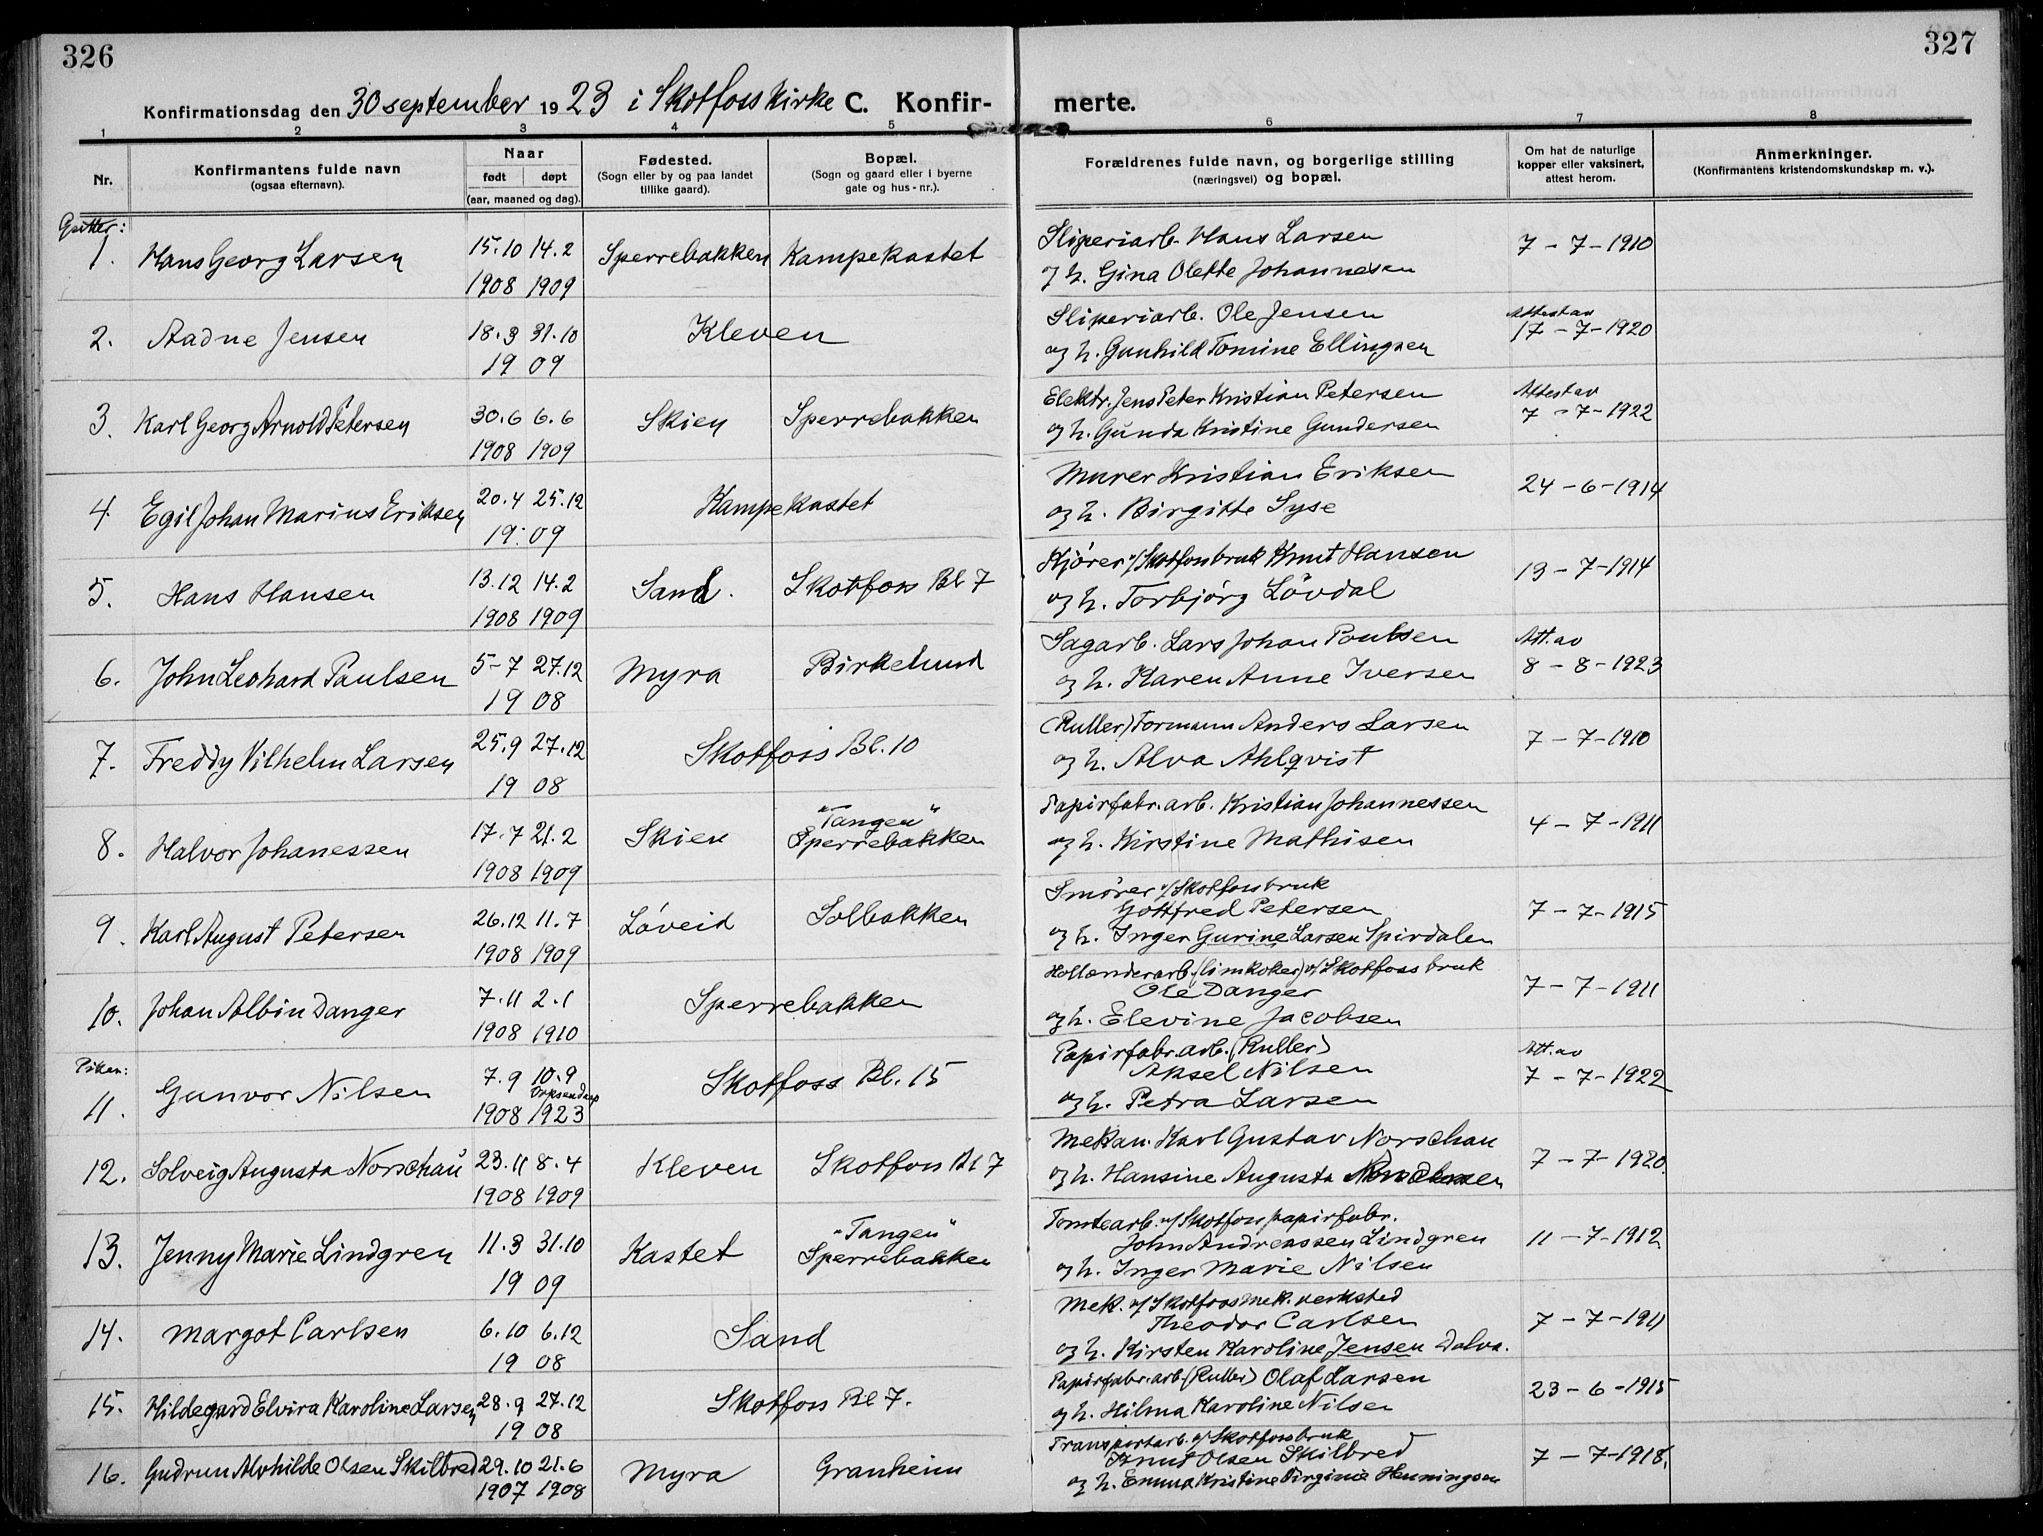 326
327
Konfirmationsdag den 30 september 1923 i Skotfoss Kirke C. Konfir- merte.
1 2 3 4 5 6 7 8
Nr.
Konfirmantens fulde navn
(ogsaa efternavn).
Naar
født døpt
(aar, maaned og dag).
Fødested.
(Sogn eller by og paa landet
tillike gaard).
Bopæl.
(Sogn og gaard eller i byerne
gate og hus-nr.).
Forældrenes fulde navn, og borgerlige stilling
(næringsvei) og bopæl.
Om hat de naturlige
kopper eller vaksinert,
attest herom.
Anmerkninger.
(Konfirmantens kristendomskundskap m. v.).
Gutter:
1. Hans Georg Larsen 15.10 14.2 Sperrebakken Kampekastet Sliperiarb. Hans Larsen 7-7-1910
1908 1909 og h. Gina Olette Johannesen
2. Aadne Jensen 18.3 31.10 Kleven Sliperiarb. Ole Jensen Attest av 17-7-1920
19 09 og h. Gunhild Tomine Ellingsen
3. Karl Georg Arnold Petersen 30.6 6.6 Skien Sperrebakken Elektr. Jens Peter Kristian Petersen Attest av 7-7-1922
1908 1909 og h. Gunda Kristine Gundersen
4. Egil Johan Marius Eriksen 20.4 25.12 Kampekastet Murer Kristian Eriksen 24-6-1914
19 09 og h. Birgitte Syse
5. Hans Hansen 13.12 14.2 Sand. Skotfoss Bl 7 Kjører v/Skotfoss bruk Knut Hansen 13-7-1914
1908 1909 og h. Torbjørg Lövdal
6. John Leonard Paulsen 5-7 27.12 Myra Birkelund Sagarb. Lars Johan Paulsen Att. av 8-8-1923
19 08 og h. Karen Anne Iversen
7. Freddy Vilhelm Larsen 25.9 27.12 Skotfoss Bl. 10 (Ruller) Formann Anders Larsen 7-7-1910
19 08 og h. Alva Ahlqvist
8. Halvor Johanessen 17.7 21.2 Skien "Tangen" Sperrebakken Papirfabr.arb. Kristian Johannessen 4-7-1911
1908 1909 og h. Kirstine Mathisen
9. Karl August Petersen 26.12 11.7 Löveid Solbakken Smører v/Skotfoss bruk 7-7-1915
Gottfred Petersen
1908 1909 og h. Inger Gurine Larsen Spirdalen
10. Johan Albin Danger 7.11 2.1 Sperrebakken Hollænderarb. (limkoker) v/Skotfoss bruk 7-7-1911
Ole Danger
1908 1910 og h. Elevine Jacobsen
Piker:
11. Gunvor Nilsen 7.9 10.9 Skotfoss Bl. 15 Papirfabr.arb. (Ruller) Att. av 7-7-1922
Aksel Nilsen
1908 1923 og h. Petra Larsen
12. Solveig Augusta Norschau 23.11 8.4 Kleven Skotfoss Bl 7 Mekan. Karl Gustav Norschau 7-7-1920.
1908 1909 og h. Hansine Augusta
13. Jenny Marie Lindgren 11.3 31.10 Kastet "Tangen" Sperrebakken Tomtearb. v/Skotfoss papirfabr. 11-7-1912.
John Andreassen Lindgren
19 09 og h. Inger Marie Nilsen
14. Margot Carlsen 6.10 6.12 Sand Mek. v/Skotfoss mek. verksted 7-7-1911
Theodor Carlsen
19 08 og h. Kirsten Karoline Jensen Dalva.
15. Hildegard Elvira Karoline Larsen 28.9 27.12 Skotfoss Bl 7. Papirfabr.arb. (Ruller) Olaf Larsen 23-6-1915
19 08 og h. Hilma Karoline Nilsen
16. Gudrun Alvhilde Olsen Skilbred 29.10 21.6 Myra Granheim Transportarb. v/Skotfoss bruk 7-7-1918.
Knut Olsen Skilbred
1907 1908 og h. Emma Kristine Virginie Henningsen